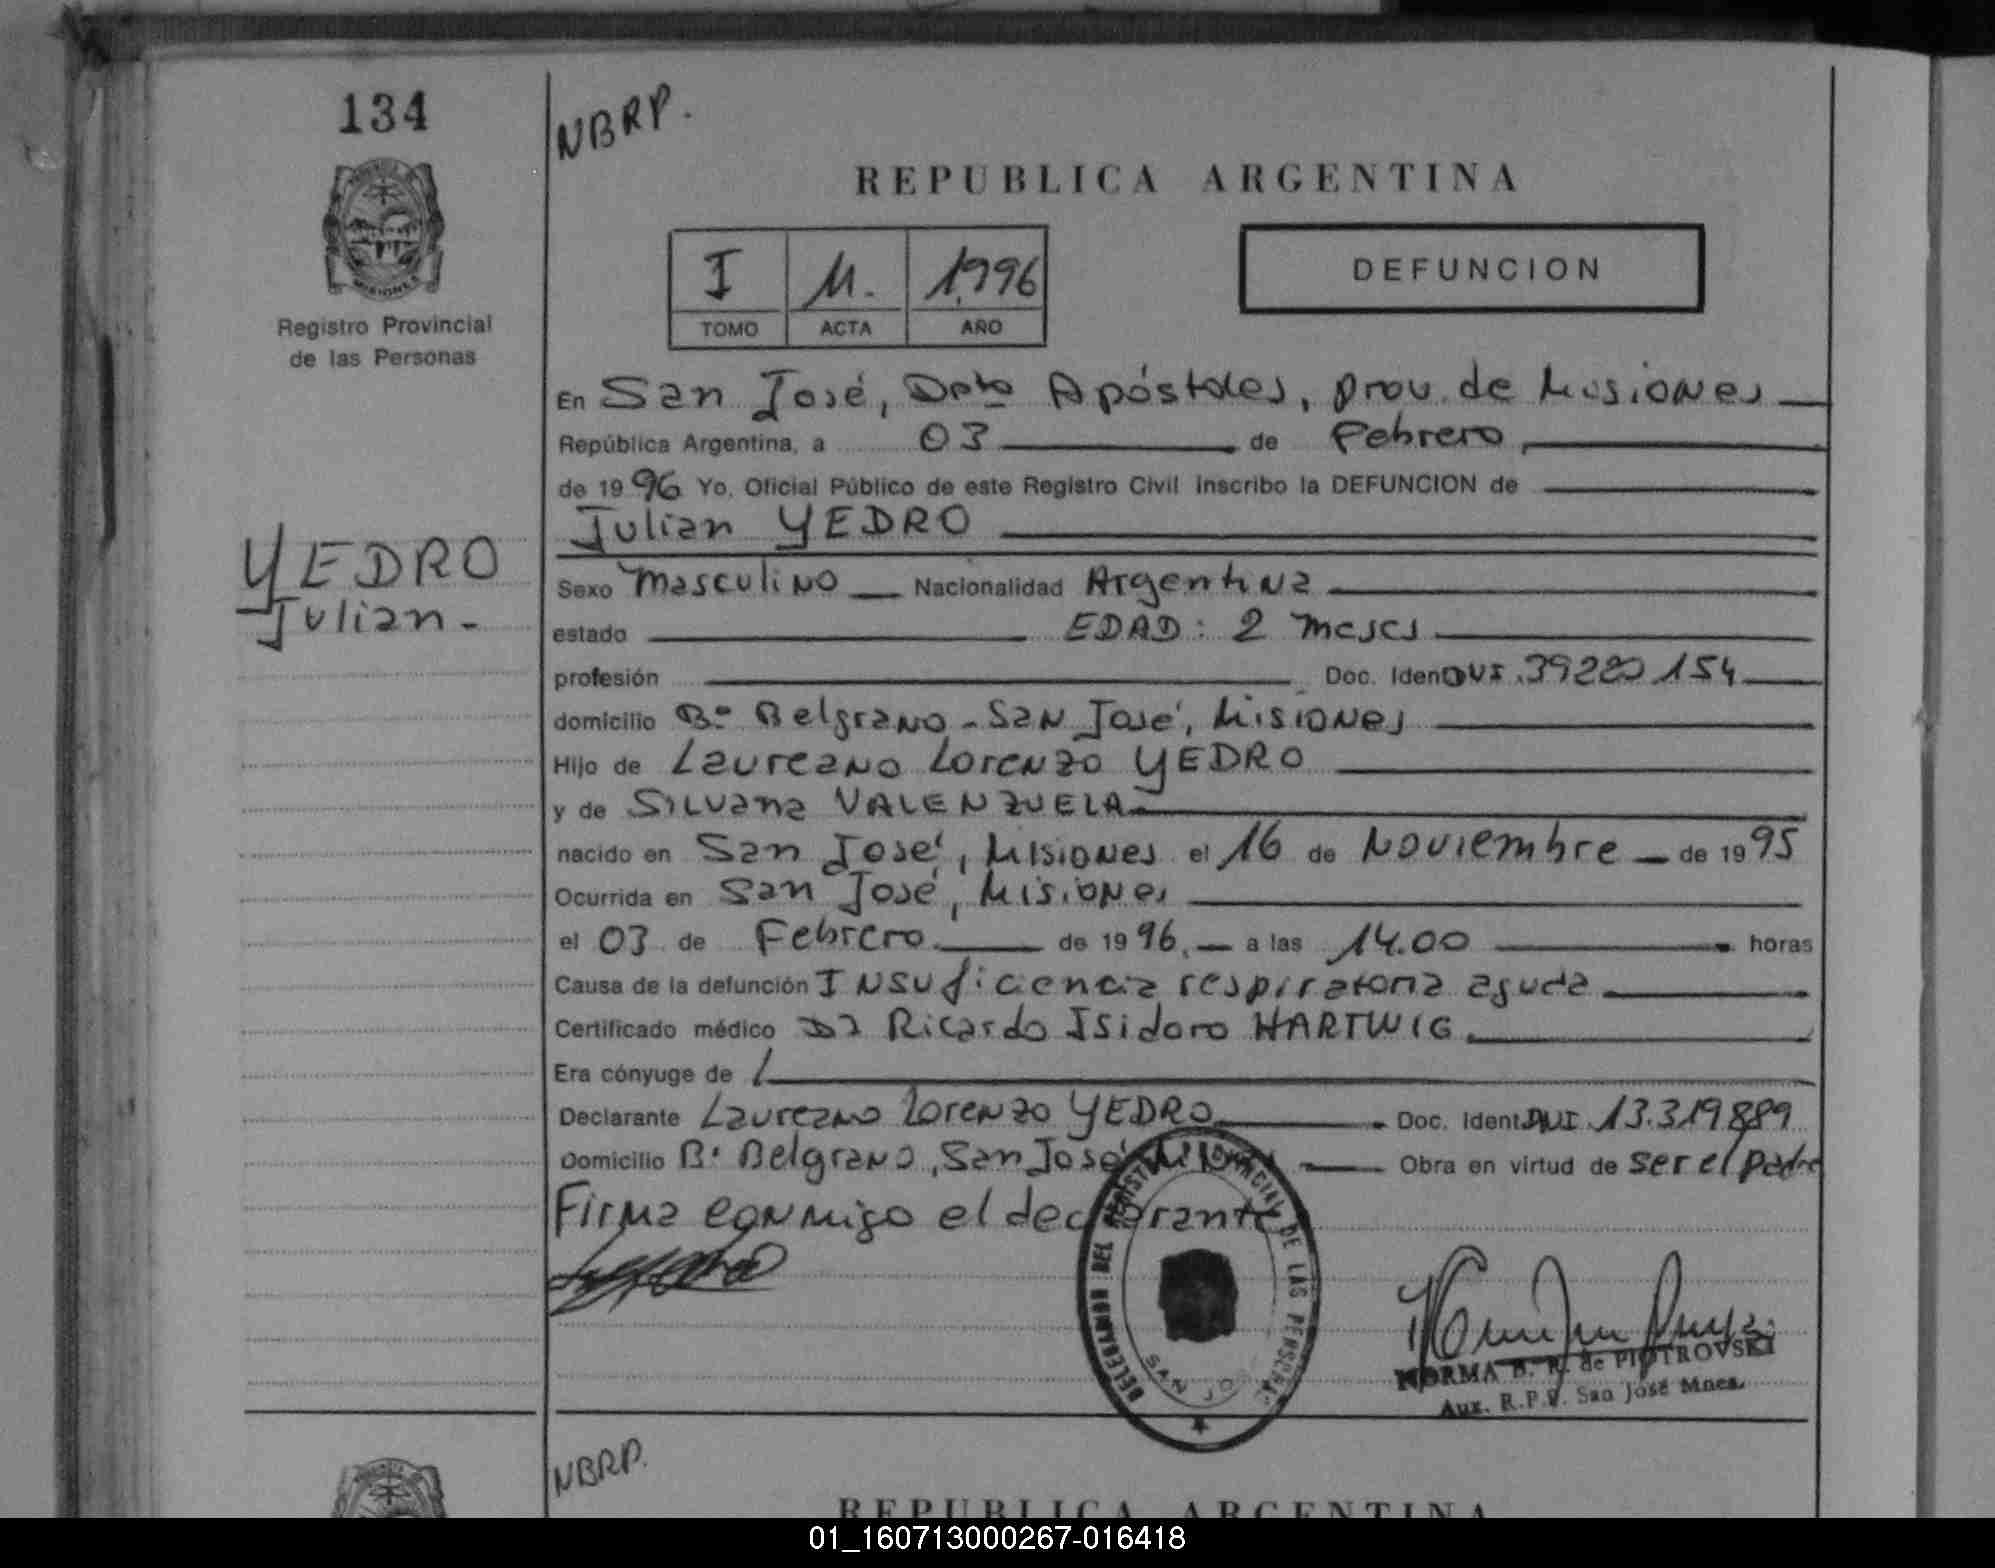 134
NBRP.
REPUBLICA ARGENTINA
I 11. 1.996
TOMO ACTA AÑO
DEFUNCION
MISIONES
Registro Provincial
de las Personas
En San José, Dpto Apóstoles, prov. de Misiones
República Argentina, a 03 de Febrero,
de 1996 Yo, Oficial Público de este Registro Civil inscribo la DEFUNCION de
Julian YEDRO
YEDRO
Julian.-
Sexo Masculino Nacionalidad Argentina
estado EDAD: 2 meses
profesión Doc. Iden DNI.39220154
domicilio Bº Belgrano - San José, Misiones
Hijo de Laureano Lorenzo YEDRO
y de Silvana VALENZUELA
nacido en San José, Misiones el 16 de Noviembre de 1995
Ocurrida en San José, Misiones
el 03 de Febrero de 1996, a las 14.00 horas
Causa de la defunción Insuficiencia respiratoria aguda
Certificado médico Dr Ricardo Isidoro HARTWIG
Era cónyuge de
Declarante Laureano Lorenzo YEDRO Doc. Ident DNI 13.319889
Domicilio Bº Belgrano, San José Obra en virtud de ser el padre
Firma conmigo el declarante
DELEGACION DEL REGISTRO PROVINCIAL DE LAS PERSONAS
SAN JOSE
NORMA B. R. de PIOTROVSKI
Aux. R.P.P. San José Mnes.
NBRP.
REPUBLICA ARGENTINA
01_160713000267-016418